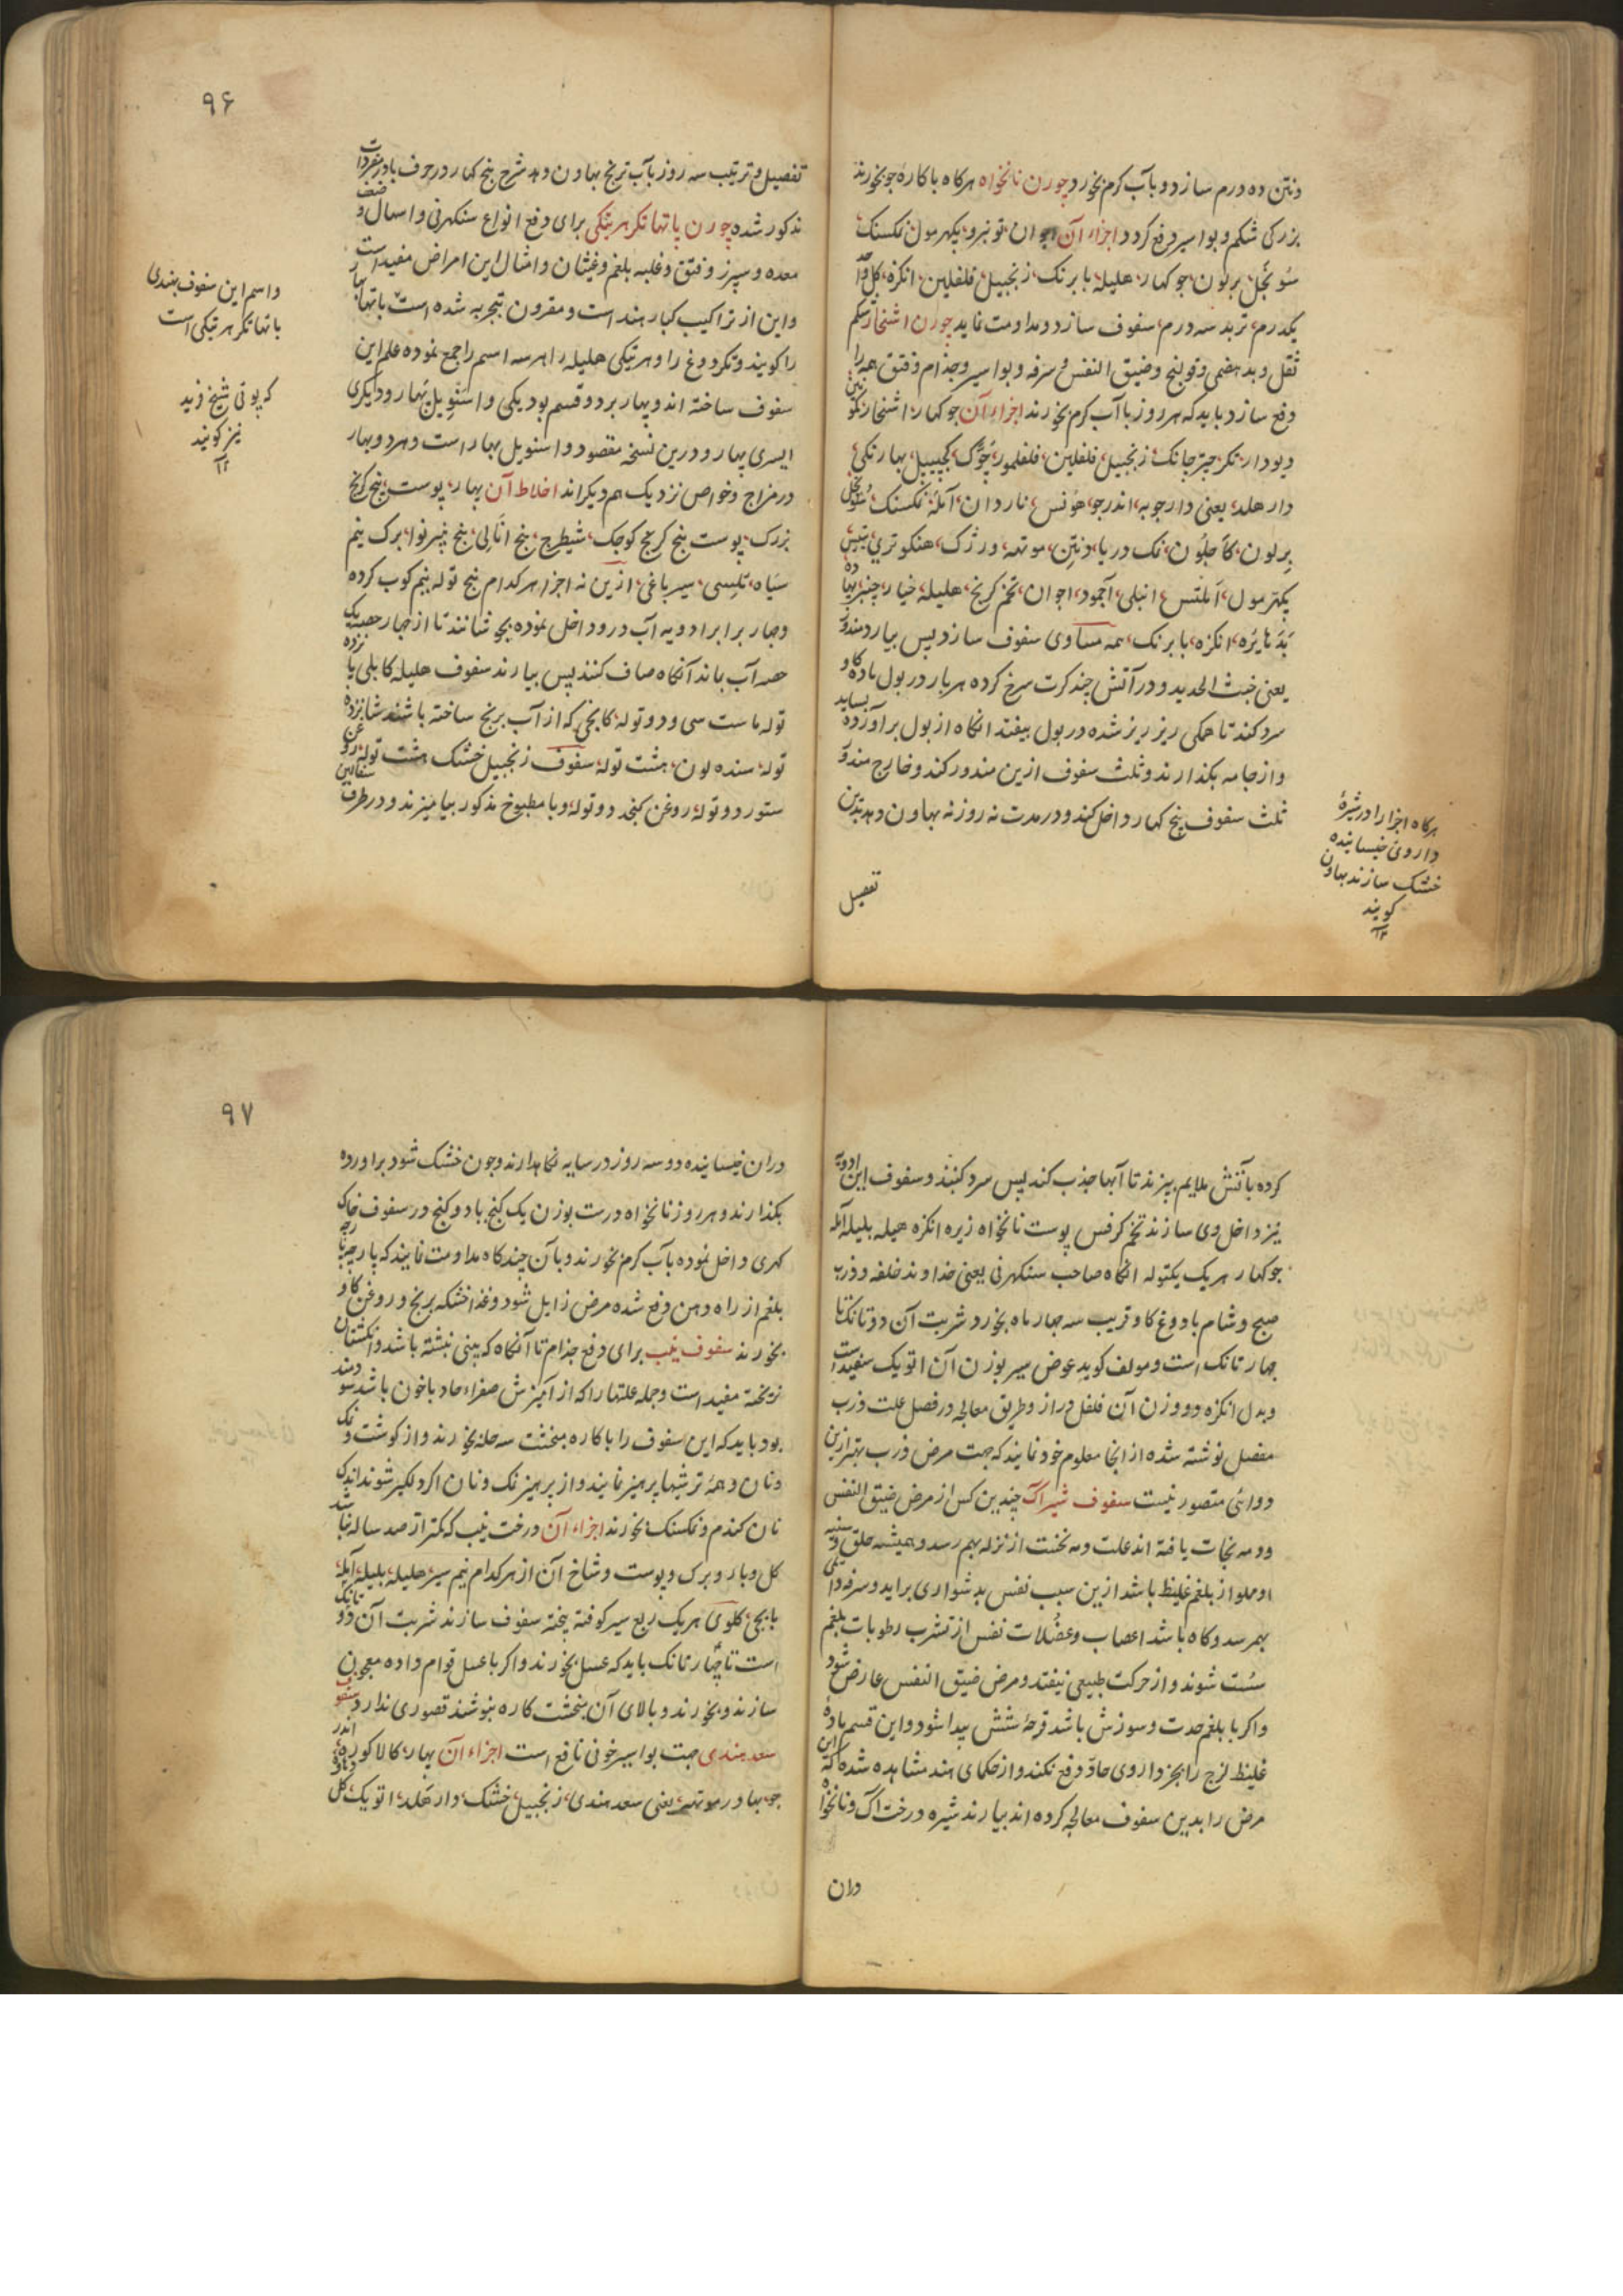 ونتن ده درم سازد و بآب کرم بخورد چورن نانخواه هرکاه با کارهٔ جو بخورند
بزرکی شکم و بواسیر دفع کردد اجزاء آن اجوان تونبرو پکهرمول نمکسنک
سونچل برلون جوکهار هلیله بابرنک زنجبیل فلفلین انکزه کل
یکدرم تربد سه درم سفوف سازد و مداومت نماید چورن اشنخار شکم
ثقل و بدهضمی و قولنج و ضیق النفس و سرفه و بواسیر و جذام و فتق همه را
دفع سازد باید که هر روز با آب کرم بخورند اجزاء آن جوکهار اشنخار
دیودار تکر زنجبیل فلفلین فلفلمور کچیپیل بهارنکی
دارهلد یعنی دارچوبه اندرجو ناردان آمله نمکسنک سونچل
برلون نمک دریا ونتن موتهه هنکوتری
پکهرمول انبلی اجمود اجوان تخم کرنج هلیله خیارچنبر
انکزه بابرنک همه مساوی سفوف سازد پس بیارد مندور
یعنی خبث الحدید و در آتش چند کرت سرخ کرده هر بار در بول ماده کاو
سرد کند تا همکی ریز ریز شده در بول بیفتد انکاه از بول برآورده بساید
و از جامه بکذارند و ثلث سفوف ازین مندور کند و خارج مندور
ثلث سفوف پنج کهار داخل کند و در مدت نه روز نه بهاون دهد بدین
تفصیل
هرکاه اجزا را در شیرهٔ
داروی خیسانیده
خشک سازند بهاون
کویند
۱۲
۹۶
تفصیل و ترتیب سه روز بآب ترنج بهاون دهد شرح پنج کهار در حرف با در مفردات
مذکور شده چورن پاتهاتکر هریتکی برای دفع انواع سنکهرنی و اسهال و ضعف
معده و سپرز و فتق و غلبه بلغم و غیثان و امثال این امراض مفید است
و این از تراکیب کبار هند است و مقرون بتجربه شده است پاتها بهار
را کویند و تکر دوغ را و هریتکی هلیله را هر سه اسم را جمع نموده علم این
سفوف ساخته اند و بهار بر دو قسم بود یکی را اسنویل بهار و دیکری
ایسری بهار و درین نسخه مقصود اسنویل بهار است و هر دو بهار
در مزاج و خواص نزدیک هم دیکراند اخلاط آن بهار پوست بیخ کرنج
بزرک پوست بیخ کرنج کوچک شیطرج بیخ بیخ برک نیم
سیاه تلسی سیر باغی ازین نه اجزا هر کدام پنج توله نیم کوب کرده
و چهار برابر ادویه آب درو داخل نموده بجوشانند تا از چهار حصه یک
حصه آب بماند آنکاه صاف کنند پس بیارند سفوف هلیله کابلی پانزده
توله ماست سی و دو توله کانجی که از آب برنج ساخته باشند شانزده
توله سنده لون هشت توله سفوف زنجبیل خشک هشت توله روغن
ستور دو توله روغن کنجد دو توله و با مطبوخ مذکور بیامیزند و در ظرف سفالین
و اسم این سفوف بهندی
پاتهاتکر هریتکی است
که پوتی شیخ فرید
نیز کویند
۱۲
کرده بآتش ملایم بپزند تا آبها جذب کند پس سرد کنند و سفوف این ادویه
نیز داخل وی سازند تخم کرفس پوست نانخواه زیره انکزه هلیله بلیله آمله
جوکهار هر یک یکتوله انکاه صاحب سنکهرنی یعنی خداوند خلفه و ذرب
صبح و شام با دوغ کاو قریب سه چهار ماه بخورد شربت آن دو تانک تا
چهار تانک است و مولف کوید عوض سیر بوزن آن اتویک سفید است
و بدل انکزه دو وزن آن فلفل دراز و طریق معالجه در فصل علت ذرب
مفصل نوشته شده از انجا معلوم خود نمایند که جهت مرض ذرب بهتر ازین
دوائی متصور نیست سفوف شیر آک چندین کس از مرض ضیق النفس
و ومه نجات یافته اند علت ومه نخست از نزله بهم رسد و همیشه حلق و سینه
او مملو از بلغم غلیظ باشد ازین سبب نفس بدشواری براید و سرفه دائمی
بهمرسد و کاه باشد اعصاب و عضلات نفس از تشرب رطوبات بلغم
سست شوند و از حرکت طبیعی بیفتد و مرض ضیق النفس عارض شود
و اکر با بلغم حدت و سوزش باشد قرحهٔ شش پیدا شود و این قسم مادهٔ
غلیظ لزج را بجز داروی حاد دفع نکند و از حکمای هند مشاهده شده که این
مرض را بدین سفوف معالجه کرده اند بیارند شیره درخت آک و نانخواه
دران
۹۷
دران خیسانیده دو سه روز در سایه نکاهدارند و چون خشک شود براورده
بکذارند و هر روز نانخواه درست بوزن یک کنج یا دو کنج در سفوف خاک
کهری داخل نموده بآب کرم بخورند و بآن چندکاه مداومت نمایند که پارچه پارچه
بلغم از راه دهن دفع شده مرض زایل شود و غذا خشکه برنج و روغن کاو
بخورند سفوف نیب برای دفع جذام تا آنکاه که بینی نبشته باشد و انکشتان
نریخته مفید است و جمله علتها را که از آمیزش صفراء حاد با خون باشد سودمند
بود باید که این سفوف را با کاره منخشت سه حله بخورند و از کوشت و نمک
و نان و همه ترشیها پرهیز نمایند و از پرهیز نمک و نان اکر دلکیر شوند اندک
نان کندم و نمکسنک بخورند اجزاء آن درخت نیب که کمتر از صد ساله نباشد
کل و بار و برک و پوست و شاخ آن از هر کدام نیم سیر هلیله بلیله آمله
بابچی کلوی هر یک ربع سیر کوفته بیخته سفوف سازند شربت آن دو تانک
است تا چهار تانک باید که عسل بخورند و اکر با عسل قوام داده معجون
سازند و بخورند و بالای آن منخشت کاره بنوشند قصوری ندارد سفوف
سعد هندی جهت بواسیر خونی نافع است اجزاء آن بهار کالا کوره اندر
جو بهادر موتهه یعنی سعد هندی زنجبیل خشک دارهلد اتویک کل